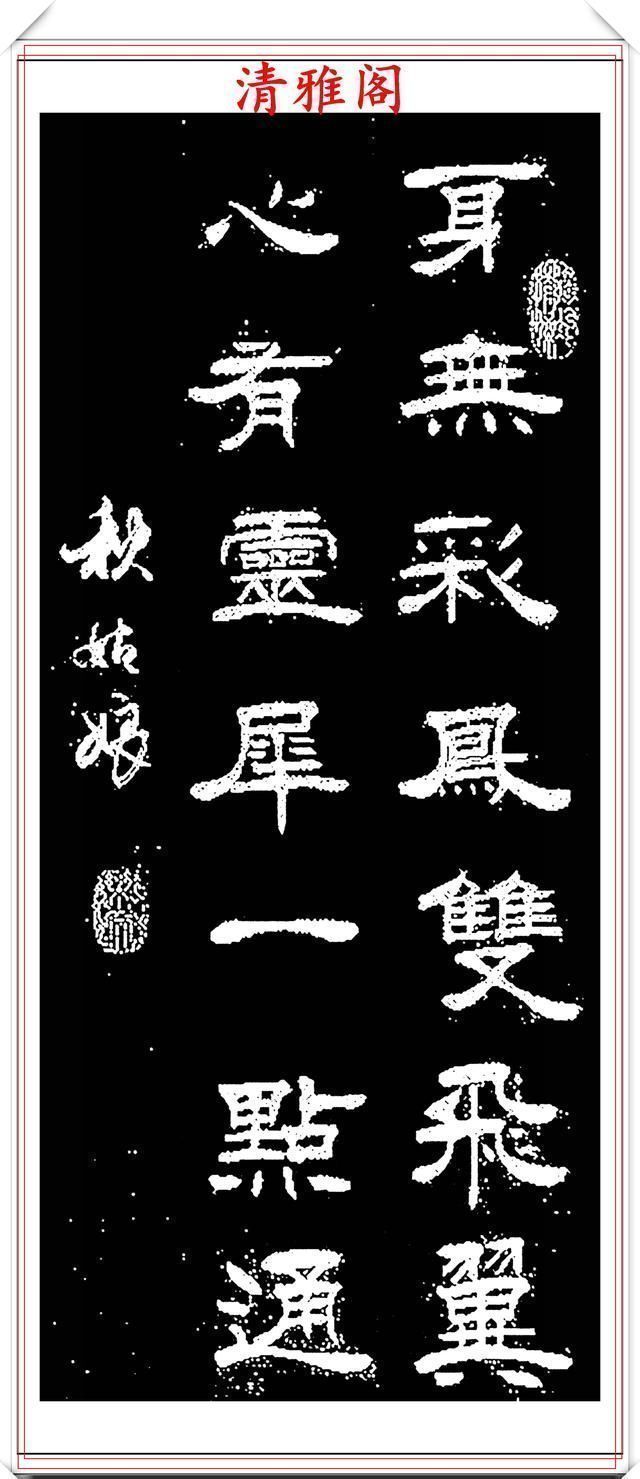 清雅阁
身無彩鳳雙飛翼
心有靈犀一點通
秋姑娘